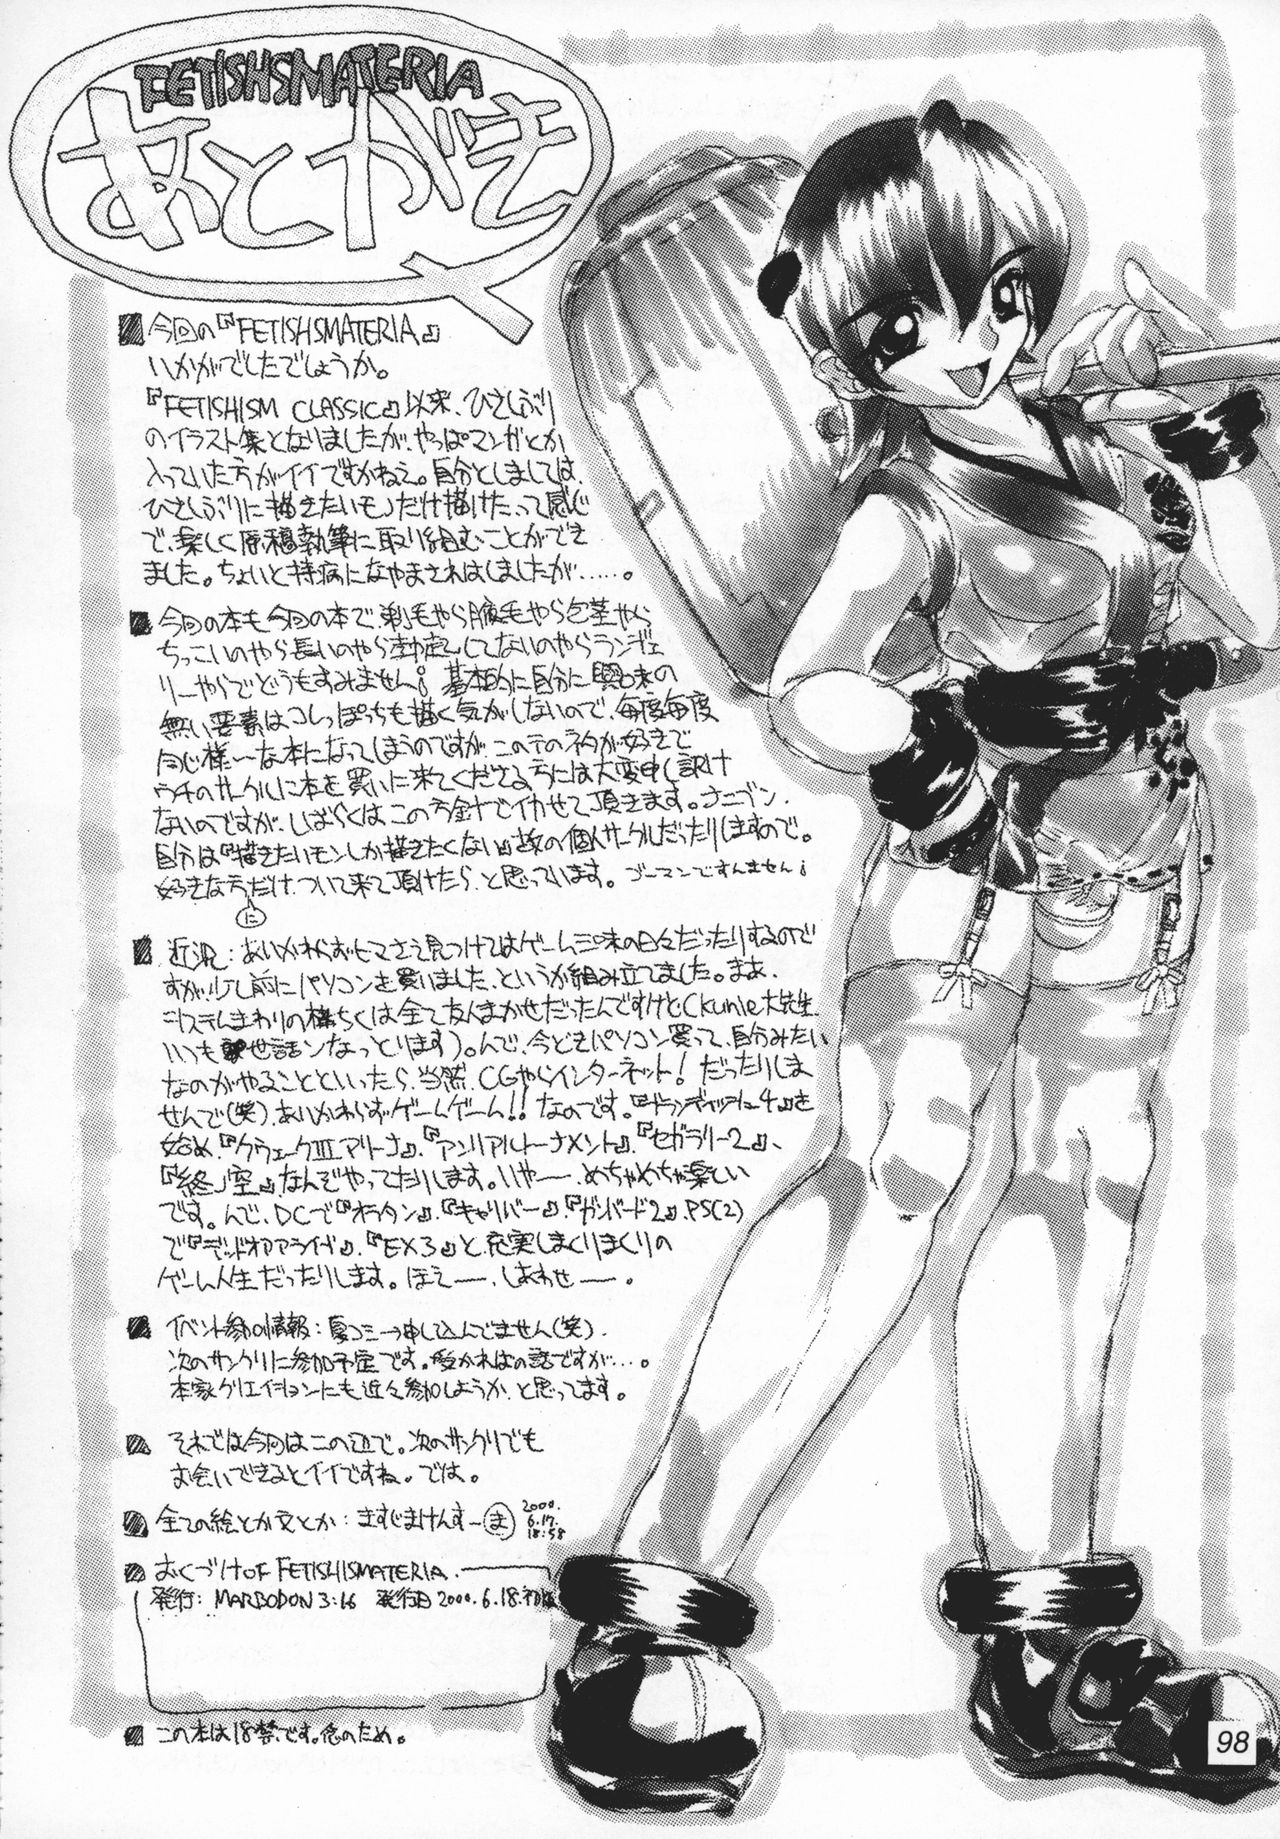 FETISHSMATERIA
あとがき
今回の『FETISHSMATERIA』
いかがでしたでしょうか。
『FETISHISM CLASSIC』以来、ひさしぶり
のイラスト集となりましたが、やっぱマンガとか
入っていた方がイイですかねえ。自分としましては、
ひさしぶりに描きたいモノだけ描けたって感じ
で、楽しく原稿執筆に取り組むことができ
ました。ちょいと持病になやまされはしましたが……。
今回の本も今回の本で、剃毛やら腋毛やら包茎やら
ちっこいのやら長いのやら勃起してないのやらランジェ
リーやらでどうもすみません! 基本的に自分に興味の
無い要素はコレっぽっちも描く気がしないので、毎度毎度
同じ様な本になってしまうのですが、この手のネタが好きで
ウチのサークルに本を買いに来てくださる方には大変申し訳け
ないのですが、しばらくはこの方針でイカせて頂きます。ナニブン、
自分は『描きたいモンしか描きたくない』故の個人サークルだったりしますので。
好きな方だけについて来て頂けたら、と思っています。ゴーマンですんません!
近況:あいかわらずヒマさえ見つけてはゲーム三昧の日々だったりするので
すが、少し前にパソコンを買いました、というか組み立てました。まあ、
システムまわりの構ちくは全て友人まかせだったんですけど(kunle大先生、
いつも世話ンなっとります)。んで、今どきパソコン買って、自分みたい
なのがやることといったら、当然、CGやらインターネット! だったりしま
せんで(笑)、あいかわらずゲームゲーム!! なのです。『グランディア』に4』を
始め、『クウェークIIIアリーナ』、『アンリアルトーナメント』、『セガラリー2』、
『終ノ空』なんぞやってたりします。いやー、めちゃめちゃ楽しい
です。んで、DCで『オラタン』、『キャリバー』、『ガンバード2』、PS(2)
で『デッドオアアライヴ』、『EX3』と、充実しまくりまくりの
ゲーム人生だったりします。ほえー、しあわせー。
イベント参加情報:夏コミ→申し込んでません(笑)。
次のサンクリに参加予定です。受かればの話ですが…。
本家クリエイションにも近々参加しようか、と思ってます。
それでは今回はこの辺で。次のサンクリでも
お会いできるとイイですね。では。
全ての絵とか文とか:きすじまけんすー(ま) 2000.
6.17.
18:58
おくづけ OF FETISHISMATERIA.
発行:MARBODON 3:16 発行日 2000.6.18.初版
この本は18禁です。念のため。
98